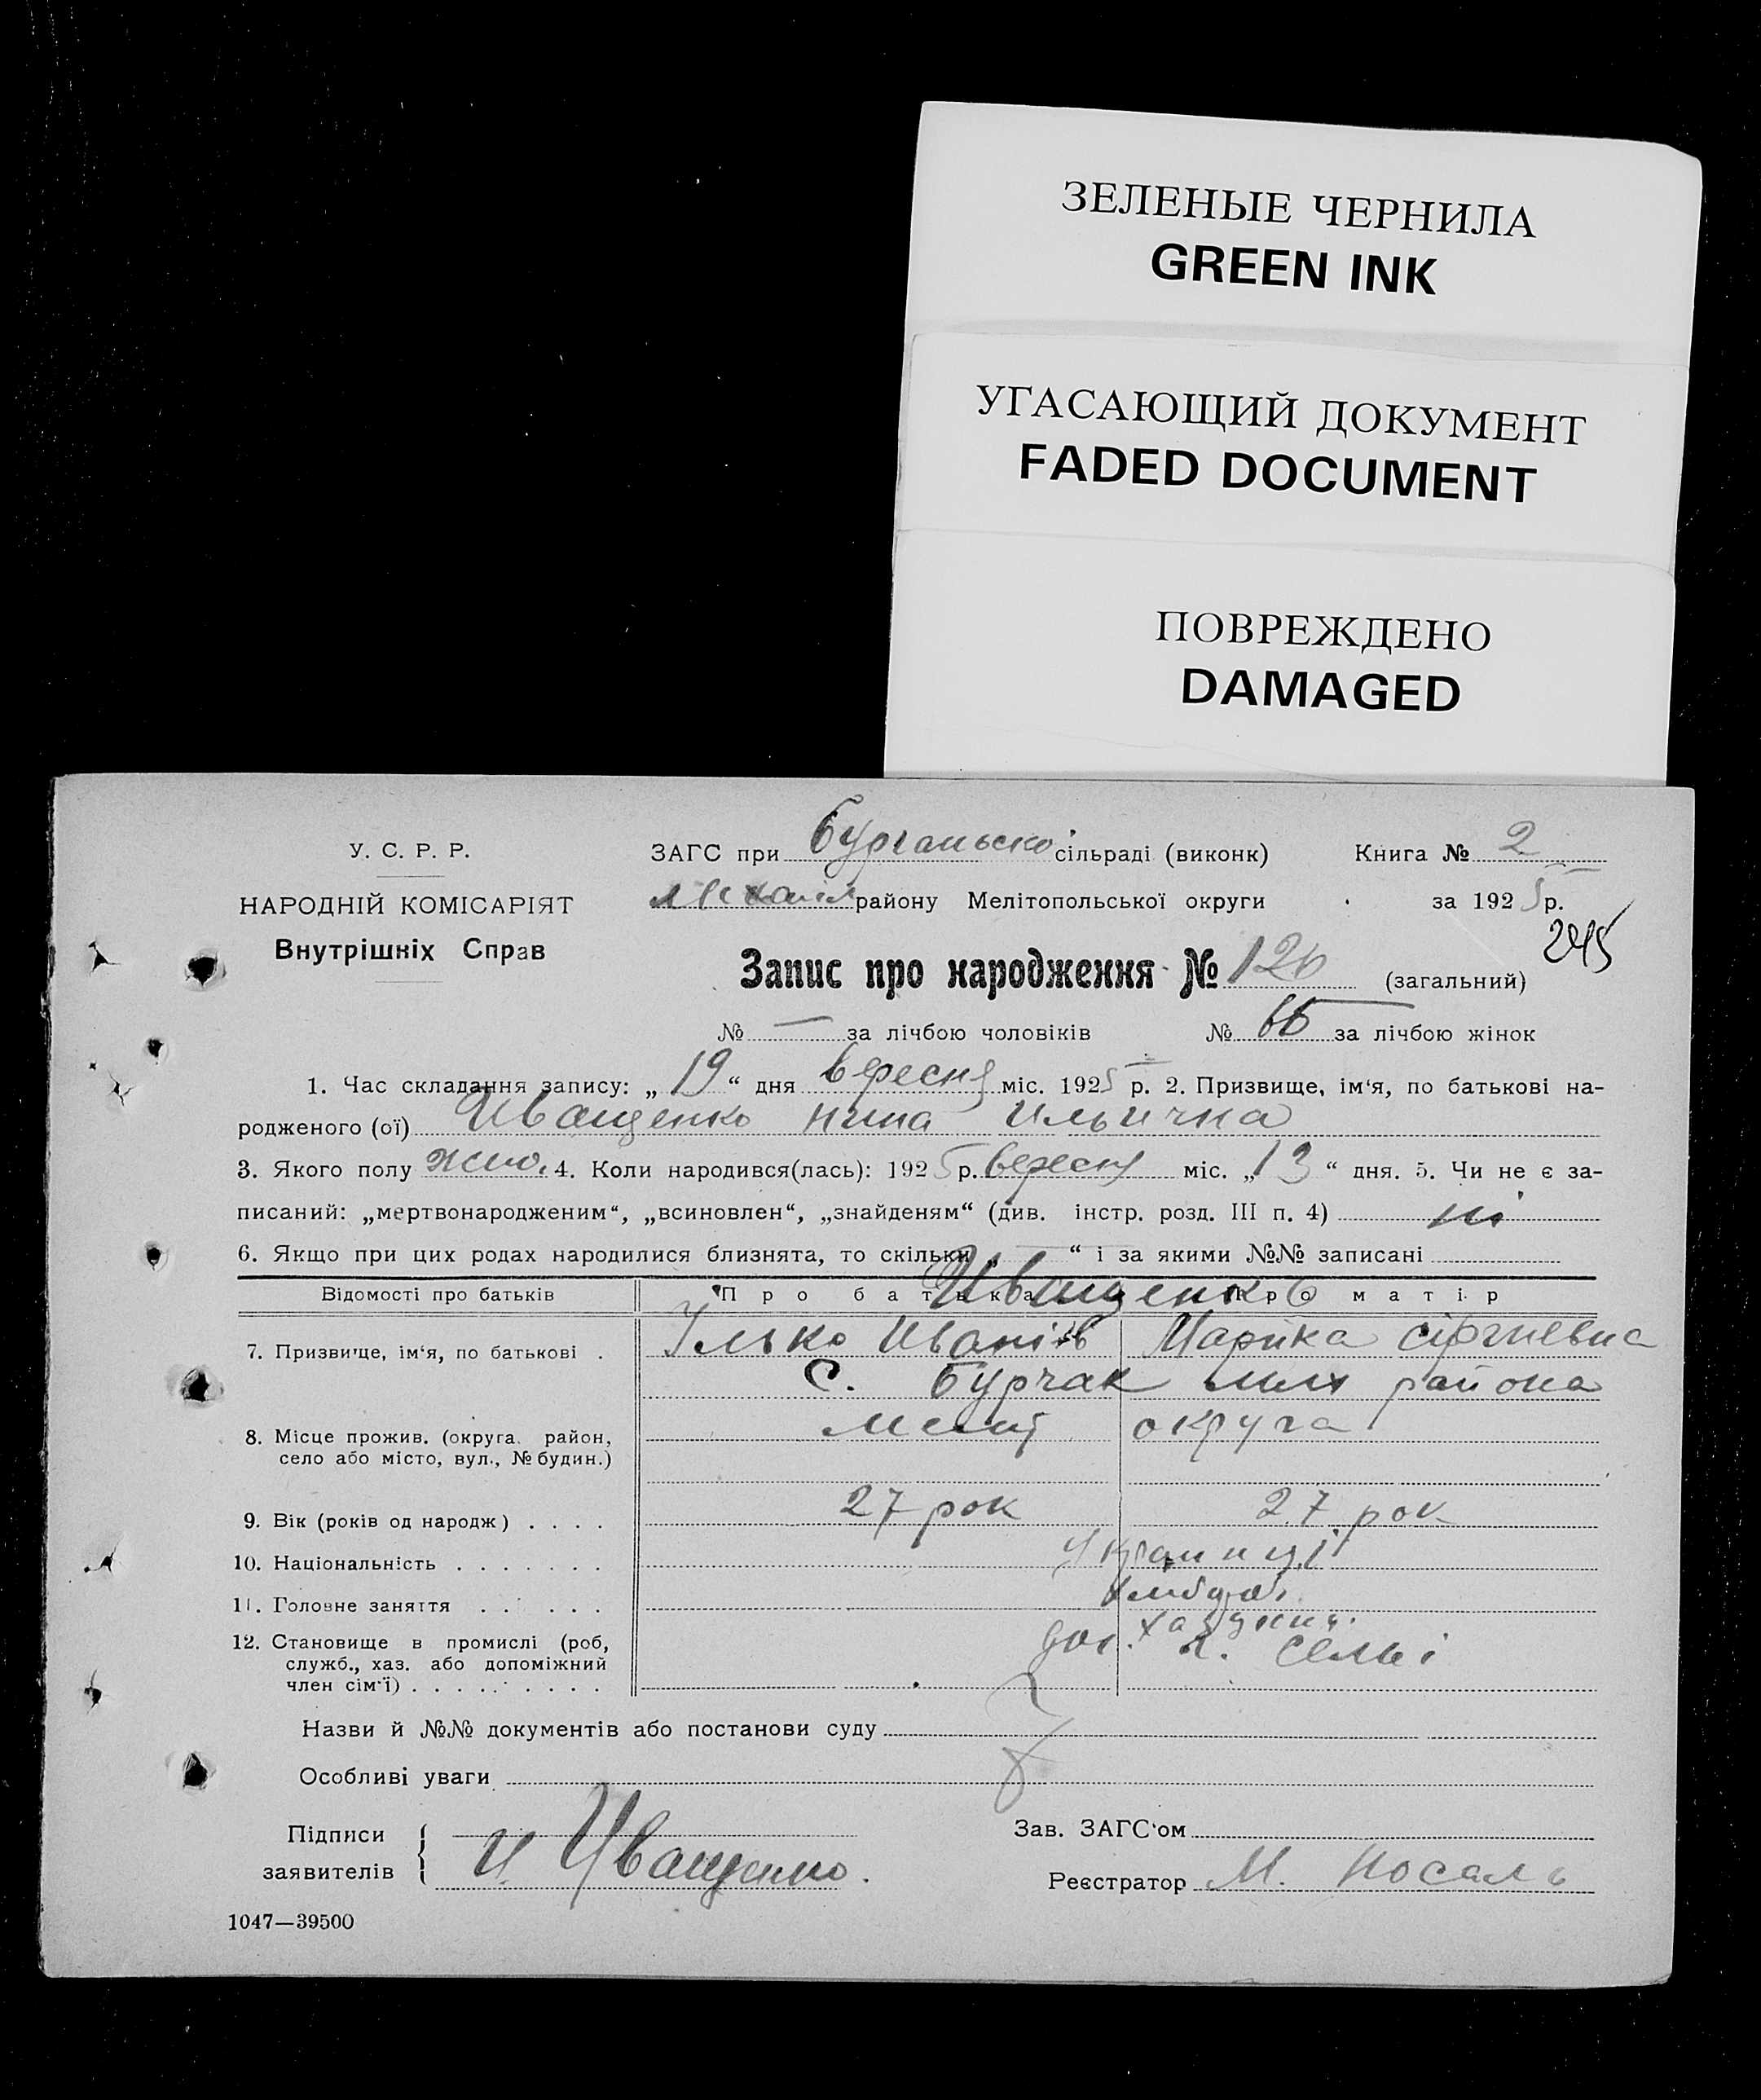 ЗЕЛЕНЫЕ ЧЕРНИЛА
GREEN INK
УГАСАЮЩИЙ ДОКУМЕНТ
FADED DOCUMENT
ПОВРЕЖДЕНО
DAMAGED
У. С. Р. Р.
НАРОДНІЙ КОМІСАРІЯТ
Внутрішніх Справ
ЗАГС при сільраді (виконк) Книга № 2
району Мелітопольської округи за 1925 р.
245
Запис про народження № 126 (загальний)
№ — за лічбою чоловіків № за лічбою жінок
1. Час складання запису: „19“ дня вересня міс. 1925 р. 2. Призвище, ім‘я, по батькові на-
родженого (ої) Иващенко Нина Ильична
3. Якого полу жіно. 4. Коли народився(лась): 1925 р. вересня міс. „13“ дня. 5. Чи не є за-
писаний: „мертвонародженим“, „всиновлен“, „знайденям“ (див. інстр. розд. III п. 4) ні
6. Якщо при цих родах народилися близнята, то скільки „ “ і за якими №№ записані
Відомості про батьків Про батька Про матір
Иващенко
7. Призвище, ім‘я, по батькові . Ілько Иванів Марійка
С. Бурчак района
8. Місце прожив. (округа, район, округа
село або місто, вул., № будин.)
9. Вік (років од народж) . . . . 27 рок 27 рок
10. Національність . . . . . . . Українці
11. Головне заняття . . . . . .
12. Становище в промислі (роб,
служб., хаз. або допоміжний
член сім‘ї) . . . . . . . . .
Назви й №№ документів або постанови суду
Особливі уваги
Підписи
заявителів И. Иващенко.
Зав. ЗАГС‘ом
Реєстратор М. Носаль
1047—39500